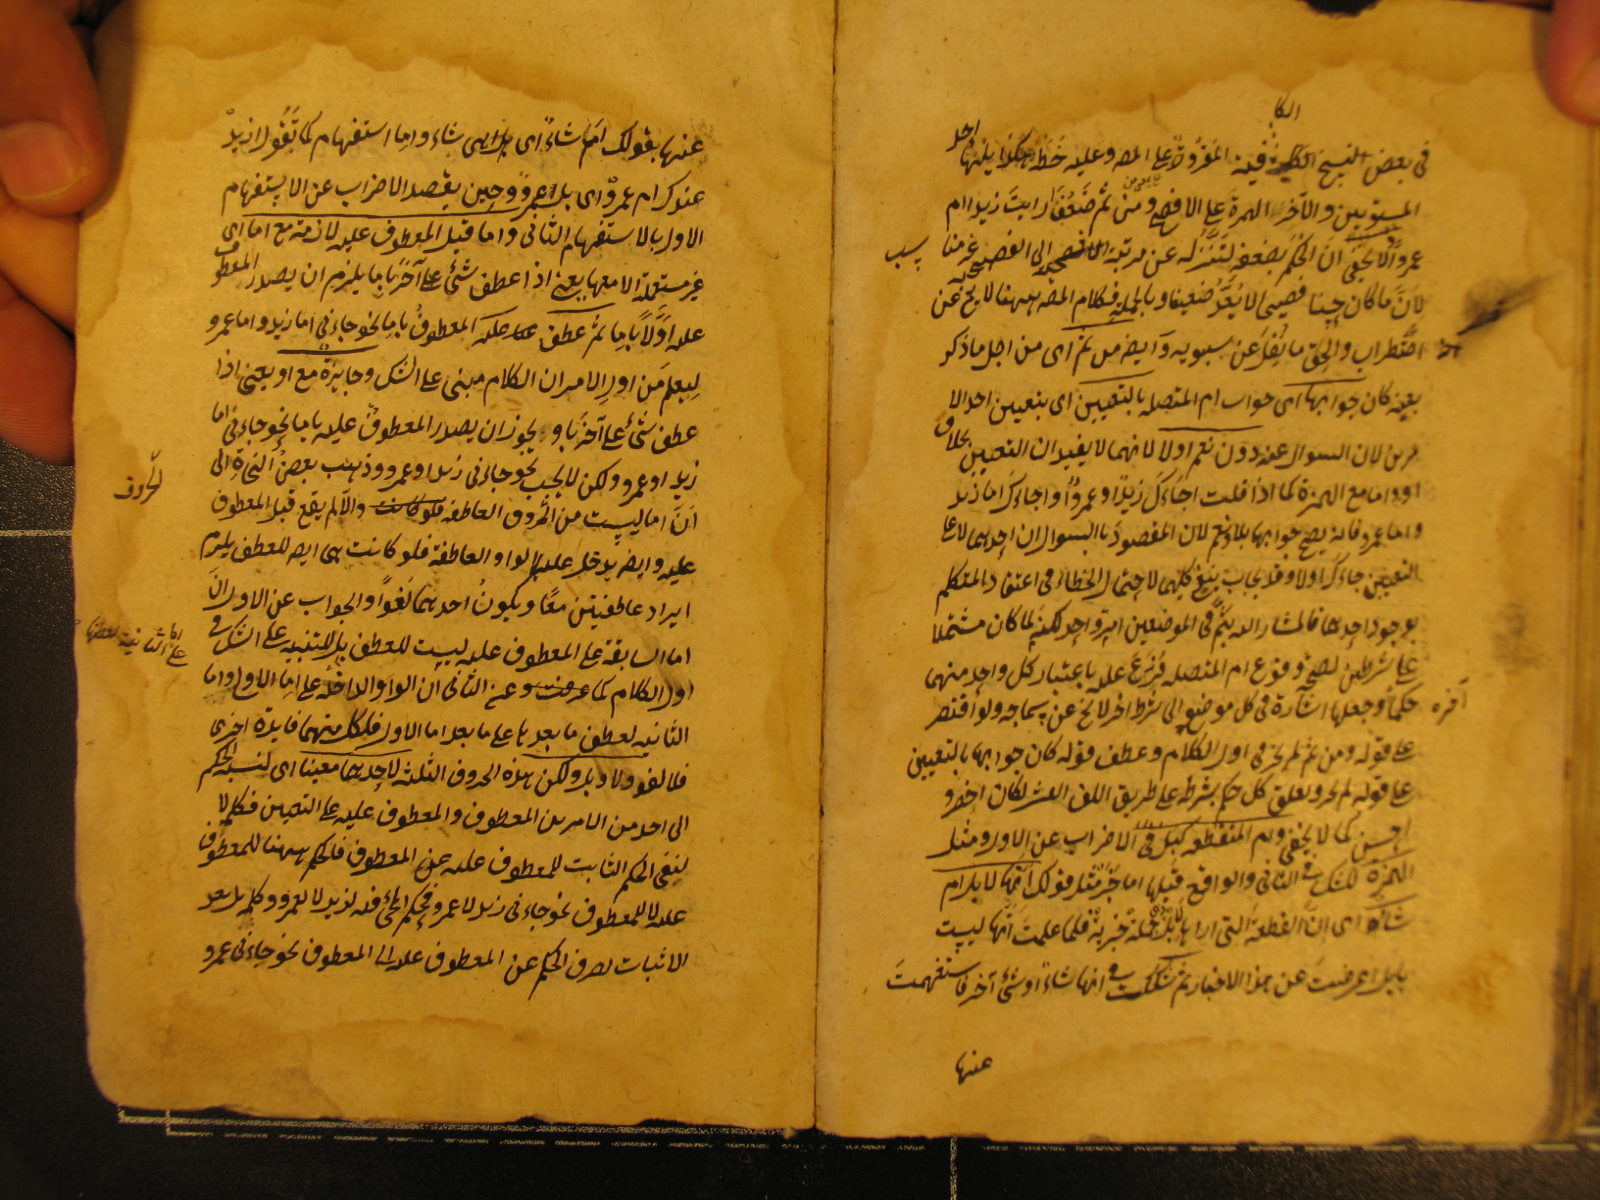 الكا
في بعض النسخ الكافية المقروة على المصـ وعليه خطه هكذا يليها احد
المستويين والآخر الهمزة على الافصح ومن ثم ضعف ارايت زيدا ام
عمروا ولا يخفى ان الحكم بضعفه لتنزله عن مرتبة الافصح الى الفصيح غير مناسب
لان ما كان حسنا فصيحا لا يعد ضعيفا وبالجملة فكلام المصـ ههنا لا يخ عن
اضطراب والحق ما نقل عن سيبويه وايضـ من ثم اى من اجل ما ذكر
بعينه كان جوابها اى جواب ام المتصلة بالتعيين اى بتعيين احد الا
مرين لان السوال عنه دون نعم او لا لانهما لا يفيدان التعيين بخلاف
او واما مع الهمزة كما اذا قلت اجاءك زيد او عمرو او اجاءك اما زيد
واما عمرو فانه يصح جوابها بلا ونعم لان المقصود بالسوال ان احدهما لا على
التعيين جاءك اولا وقد يجاب بنفى كليهما لاحتمال الخطأ فى اعتقاد المتكلم
بوجود احدهما فالمشار اليه بثم فى الموضعين امر واحد لكنه لما كان مشتملا
على شرطين لصحة وقوع ام المتصلة فرع عليه باعتبار كل واحد منهما
حكما وجعلها اشارة فى كل موضع الى شرط اخر لا يخ عن سماجة ولو اقتصر
على قوله ومن ثم لم يجز فى اول الكلام وعطف قوله كان جوابها بالتعيين
على قوله لم يجز وتعلق كل حكم بشرطه على طريق اللف والنشر لكان اخصر و
احسن كما لا يخفى وام المنقطعة كبل فى الاضراب عن الاول ومثل
الهمزة للشك فى الثانى والواقع قبلها اما خبر مثل قولك انها لابل ام
شاة اى ان القطعة التى اراها لابل جملة خبرية فلما علمت انها ليست
بابل اعرضت عن هذا الاخبار ثم شككت فى انها شاء او شئ آخر فاستفهمت
عنها
عنها بقولك ام شاء اى بل اهى شاء واما استفهام كما تقول ازيد
عندك ام عمرو اى بل اعمرو وحين يقصد الاضراب عن الاستفهام
الاول بالاستفهام الثانى واما قبل المعطوف عليه لازمة مع اما اى
غير مستعملة الا معها يعنى اذا عطف شئ على آخر باما يلزم ان يصدر المعطوف
عليه اولا باما ثم عطف عليه المعطوف باما نحو جاءنى اما زيد واما عمرو
ليعلم من اول الامر ان الكلام مبنى على الشك وجايزة مع او يعنى اذا
عطف شئ على آخر باو يجوز ان يصدر المعطوف عليه باما نحو جاءنى اما
زيد او عمرو ولكن لا يجب نحو جاءنى زيد او عمرو وذهب بعض النحاة الى
ان اما ليست من الحروف العاطفة والا لم يقع قبل المعطوف
عليه وايضـ يدخل عليها الواو العاطفة فلو كانت هى ايضـ للعطف يلزم
ايراد عاطفتين معا ويكون احدهما لغوا والجواب عن الاول ان
اما السابقة على المعطوف عليه ليست للعطف بل للتنبيه على الشك فى
اول الكلام كما عرفت وعن الثانى ان الواو الداخلة على اما الاول واما
الثانية لعطف ما بعدها على ما بعد اما الاول فلكل منهما فايدة اخرى
فلا لغو ولا وبل ولكن هذه الحروف الثلثة لاحدهما معينا اى لنسبة الحكم
الى احد من الامرين المعطوف والمعطوف عليه على التعيين فكلمة لا
لنفى الحكم الثابت للمعطوف عليه عن المعطوف فالحكم ههنا للمعطوف
عليه لا للمعطوف نحو جاءنى زيد لا عمرو فحكم المجئ فيه لزيد لا لعمرو وكلمة بل بعد
الاثبات لصرف الحكم عن المعطوف عليه الى المعطوف نحو جاءنى عمرو